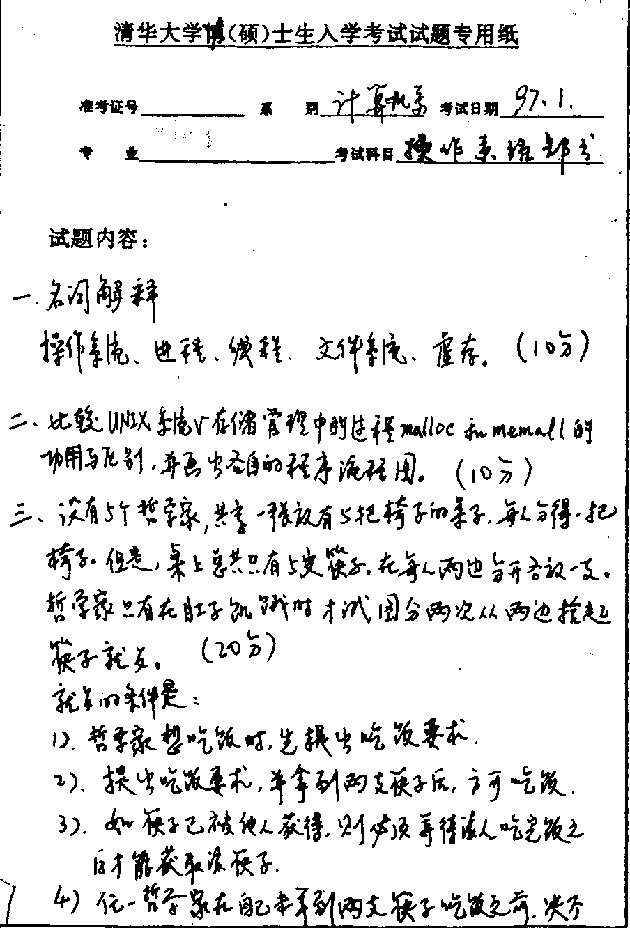 清华大学博(硕)士生入学考试试题专用纸
准考证号 系 别 计算机系 考试日期 97.1.
专 业 考试科目 操作系统部分
试题内容：
一. 名词解释
操作系统、进程、线程、文件系统、虚存。(10分)
二、比较UNIX系统V存储管理中的过程malloc和memall的
功用与区别，并画出各自的程序流程图。(10分)
三、设有5个哲学家，共享一张放有5把椅子的桌子，每人分得一把
椅子。但是，桌上总共只有5支筷子，在每人两边分开各放一支。
哲学家只有在肚子饥饿时才试图分两次从两边拾起
筷子就餐。(20分)
就餐的条件是：
1). 哲学家想吃饭时，先提出吃饭要求.
2). 提出吃饭要求，并拿到两支筷子后，方可吃饭.
3). 如筷子已被他人获得，则必须等待该人吃完饭之
后才能获取该筷子.
4) 任一哲学家在自己未拿到两支筷子吃饭之前，决不